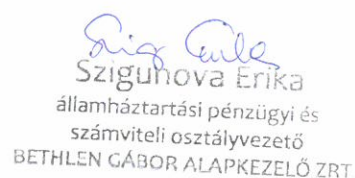 Szigunova Erika
államháztartási pénzügyi és
számviteli osztályvezető
BETHLEN GÁBOR ALAPKEZELŐ ZRT